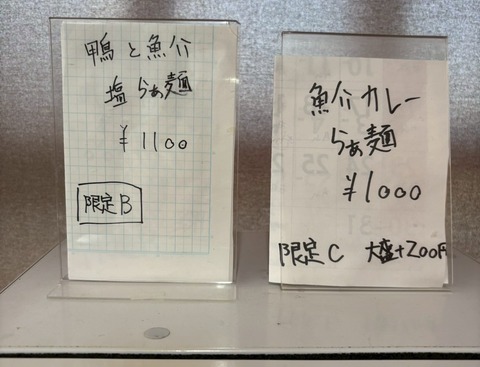 鴨と魚介
塩らぁ麺
¥1100
限定B
魚介カレー
らぁ麺
¥1000
限定C 大盛+200円